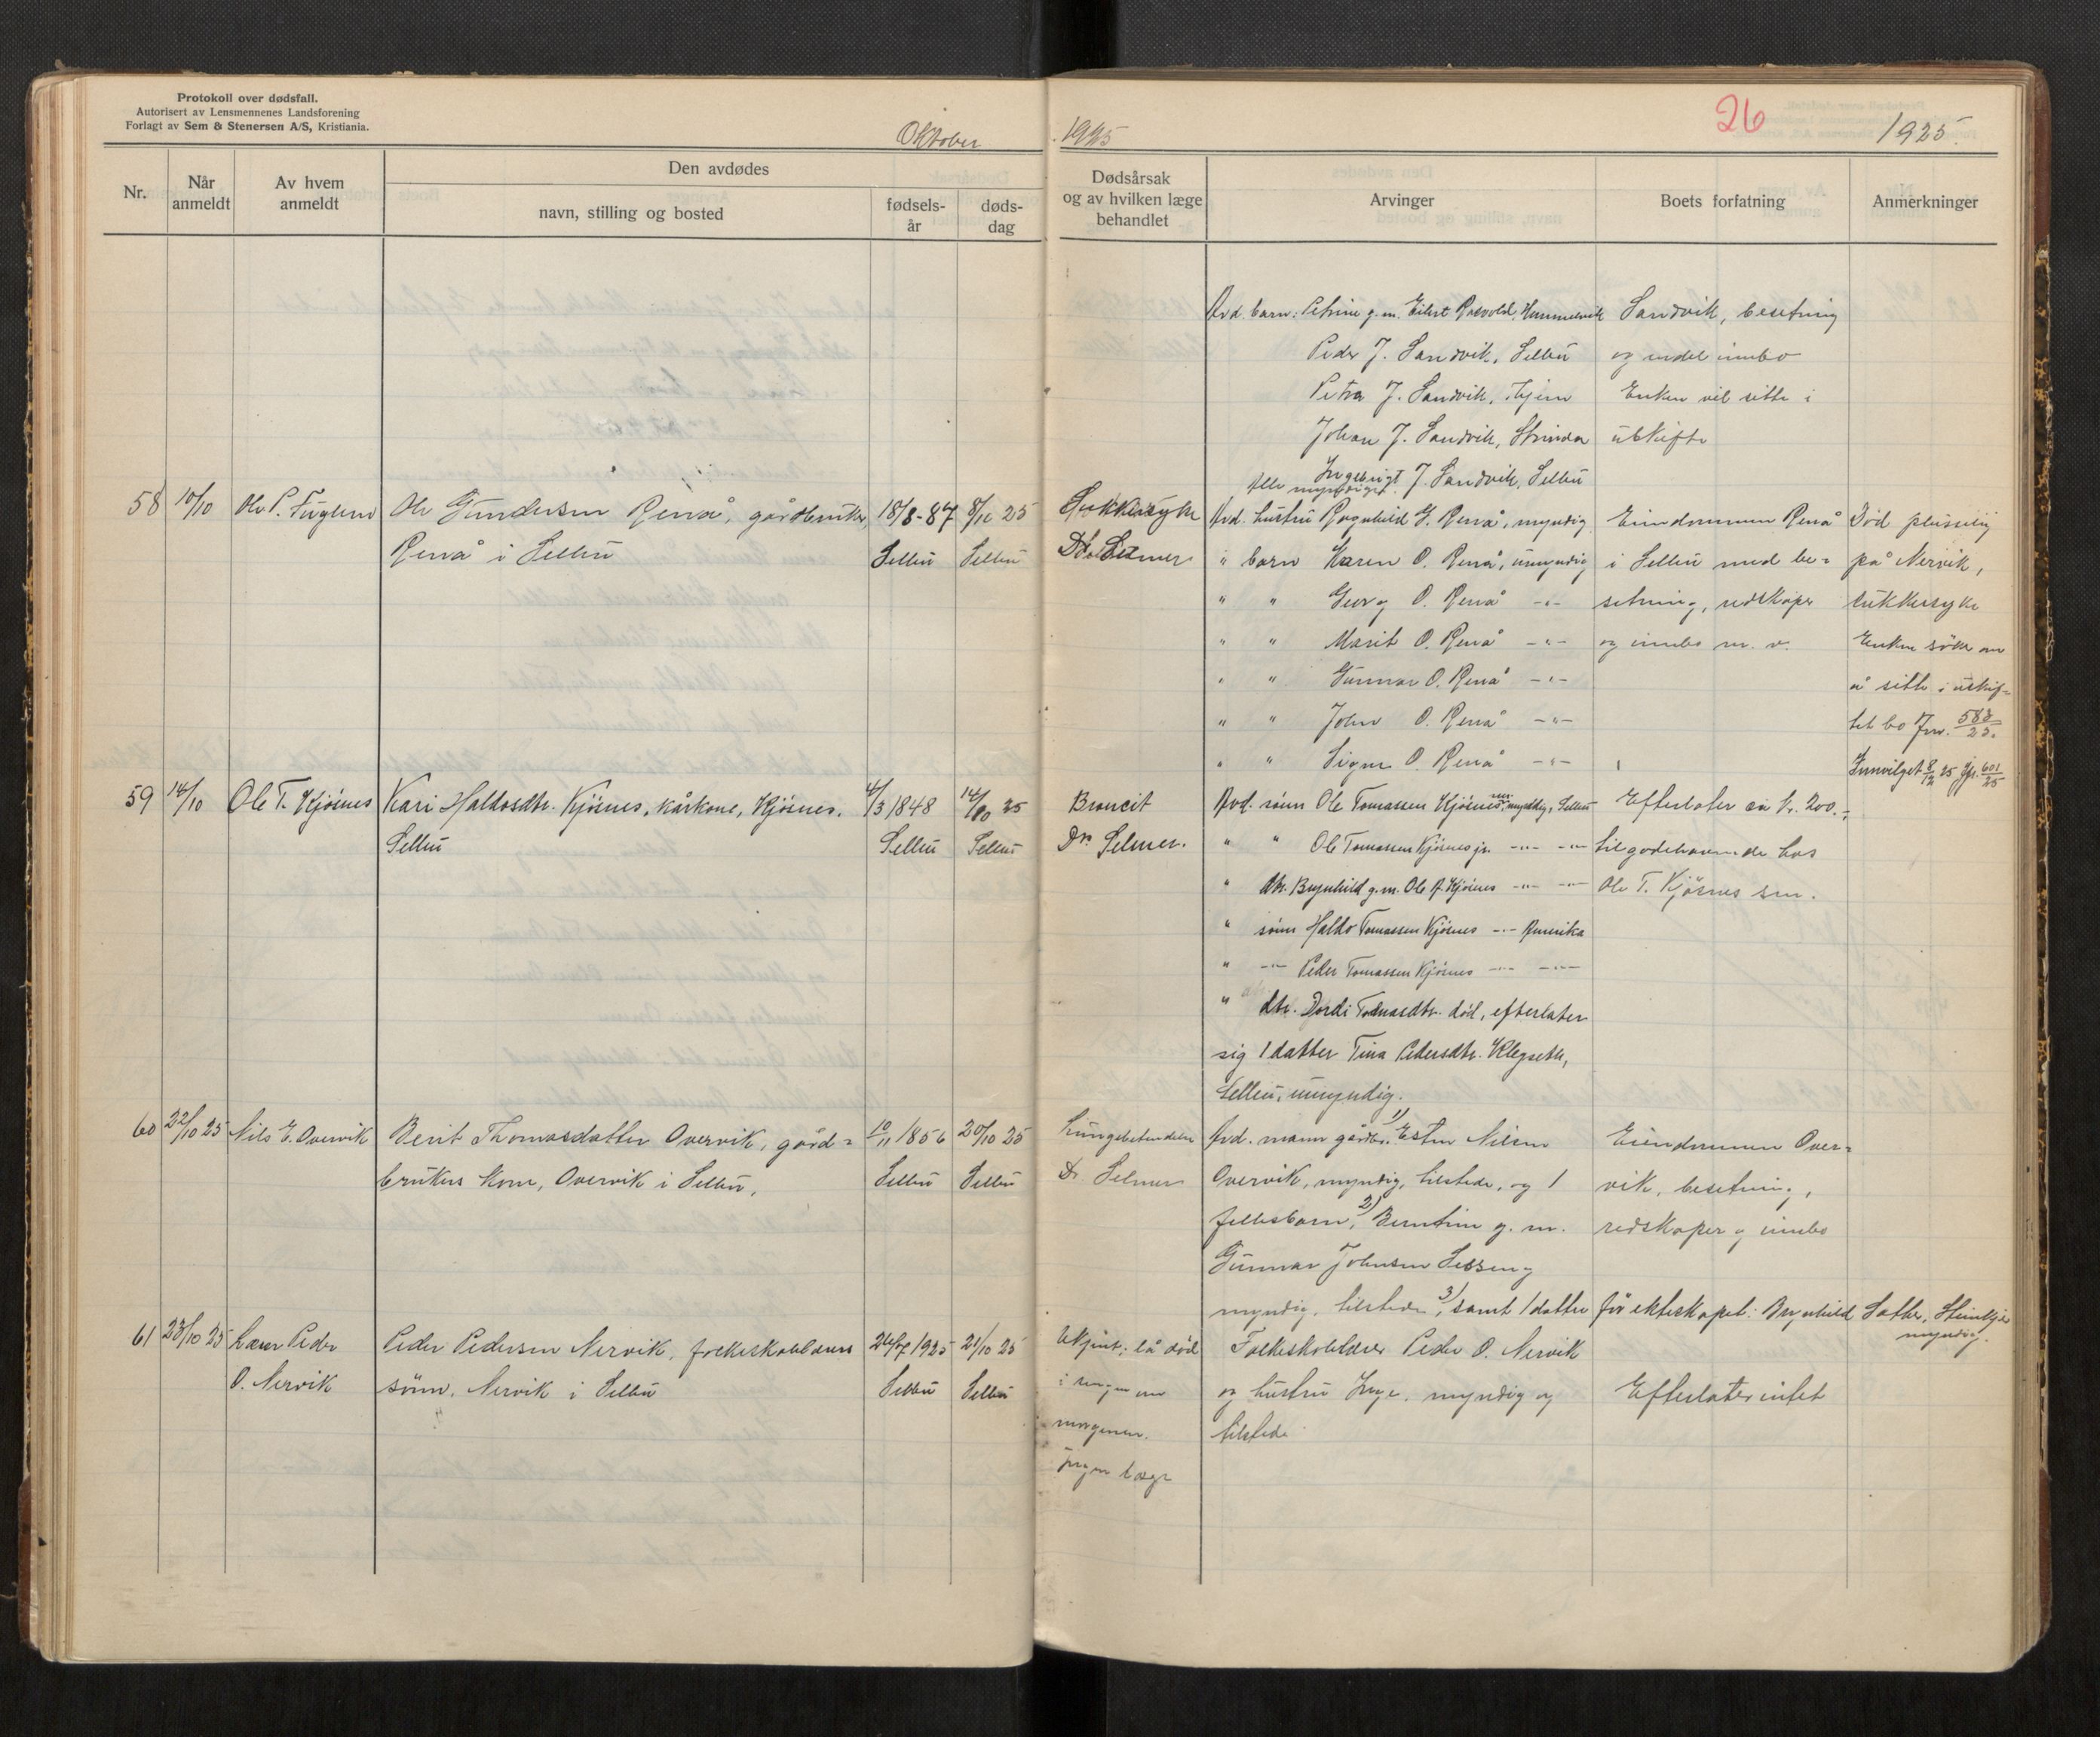 Protokoll over dødsfall.
Autorisert av Lensmennenes Landsforening
Forlagt av Sem & Stenersen A/S, Kristiania.
Oktober 1925
26
1925.
Nr.
Når anmeldt
Av hvem anmeldt
Den avdødes
navn, stilling og bosted
fødsels-år
døds-dag
Dødsårsak og av hvilken læge behandlet
Arvinger
Boets forfatning
Anmerkninger
Avd. barn: Petrine g. m. Eilert Hommelvik Sandvik, besetning
Peder J. Sandvik, Selbu og endel innbo
Petra J. Sandvik, hjem Enken vil sitte i
Johan J. Sandvik, Strinda uskifte
Ingebrigt J. Sandvik, Selbu
Alle myndige.
58 10/10 Ole P. Fuglem Ole Gundersen Renå, gårdbruker, 18/8-87 8/10 25 Sukkersyke Avd. hustru Ragnhild G. Renå, myndig Eiendommen Renå Död plusselig
Renå i Selbu Selbu Selbu Dr. Selmer " barn Karen O. Renå, umyndig i Selbu med be= på Nervik,
" " Georg O. Renå -"- setning, redskaper sukkersyke
" " Marit O. Renå -"- og innbo m. v. Enken söker om
" " Gunnar O. Renå -"- å sitte i uskif=
" " John O. Renå -"- tet bo Jnr. 583/25.
" " Signe O. Renå -"- Innvilget 8/12 25 Jnr. 601/25
59 14/10 Ole T. Kjösnes Kari Haldosdtr. Kjösnes, kårkone, Kjösnes. 4/3 1848 14/10 25 Broncit Avd. sönn Ole Tomassen Kjösnes sen. myndig, Selbu Efterlater ca kr. 200.-,
Selbu Selbu Selbu Dr. Selmer. " " Ole Tomassen Kjösnes jr. -"- -"- tilgodehavende hos
" dtr. Brynhild g. m. Ole A. Kjösnes -"- -"- Ole T. Kjösnes sen.
" sönn Haldo Tomassen Kjösnes -"- Amerika
" -"- Peder Tomassen Kjösnes -"- -"-
" dtr. Dordi Tomasdtr. död, efterlater
sig 1 datter Tina Pedersdtr. Klegseth,
Selbu, umyndig.
60 22/10 25 Nils E. Overvik Berit Thomasdatter Overvik, gård= 10/11 1856 20/10 25 Lungebetendelse Avd. mann gårdbr. 1) Esten Nilsen Eiendommen Over=
brukers kone, Overvik i Selbu, Selbu Selbu Dr. Selmer Overvik, myndig, tilstede, og 1 vik, besetning,
fellesbarn, 2) Berntine g. m. redskaper og innbo
Gunnar Johnsen
myndig, tilstede, 3) samt 1 datter för ekteskapet: Brynhild Sotter, Steinkjer
myndig.
61 23/10 25 Lærer Peder Peder Pedersen Nervik, folkeskolelærers 24/7 1925 21/10 25 Ukjent; lå död Folkeskolelærer Peder O. Nervik
O. Nervik sönn, Nervik i Selbu Selbu Selbu i sengen om og hustru Inge, myndig og Efterlater intet
morgenen. tilstede
Ingen læge